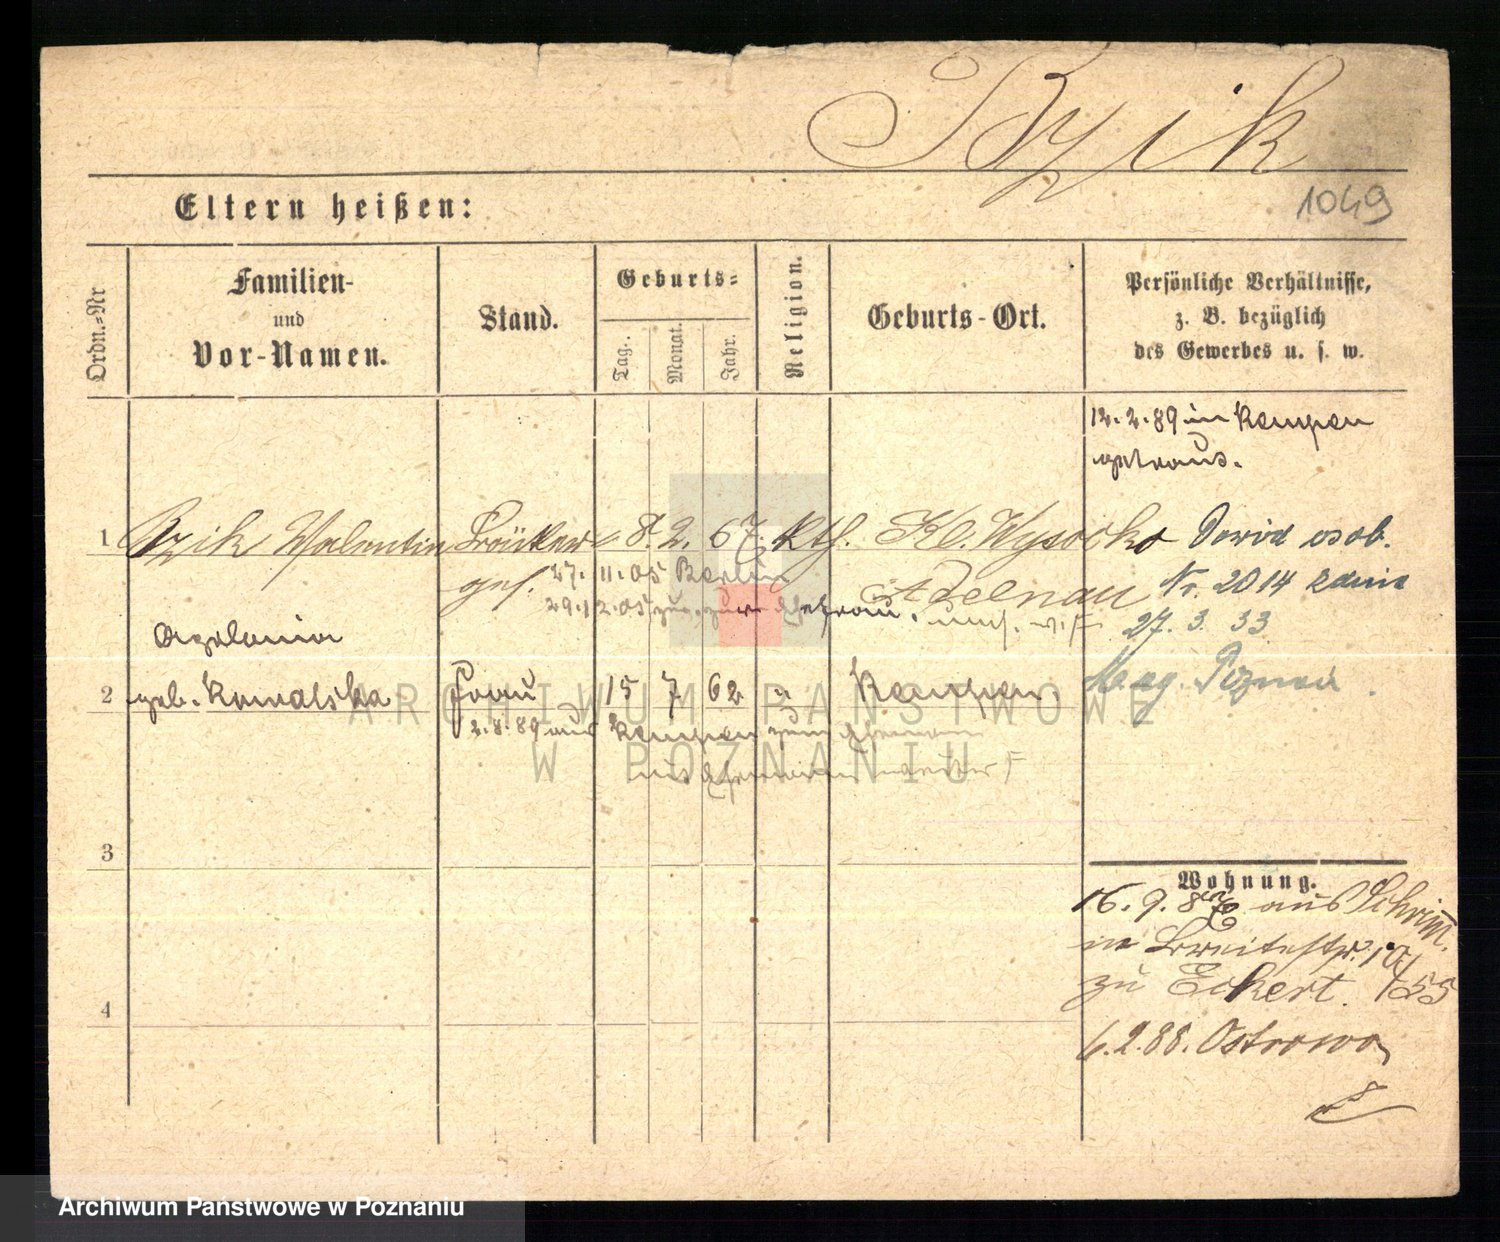 Bzik
1049
Eltern heißen:
Ordn.-Nr
Familien-
und
Vor-Namen.
Stand.
Geburts-
Tag.
Monat.
Jahr.
Religion.
Geburts-Ort.
Persönliche Verhältnisse,
z. B. bezüglich
des Gewerbes u. s. w.
12.2.89 in Kempen
getraut.
1 Bzik Valentin 8. 2. 67. Kth. Kl. Wysocko
Dowód osob.
ges. 27. 11. 05 Berlin
Adelnau
Nr. 2014 z dnia
29.12.05 zur Ehefrau.
27. 3. 33
Apolonia
Mag. Poznań
2 geb. Kowalska Frau 15 7 62 " Kempen
2.8.89 aus Kempen zum Ehemann
mit Ehemann
3
Wohnung.
16. 9. 87 aus Schrimm.
in Breitestr.
zu Eckert.
4
6.2.88. Ostrowo
ARCHIWUM PAŃSTWOWE
W POZNANIU
Archiwum Państwowe w Poznaniu